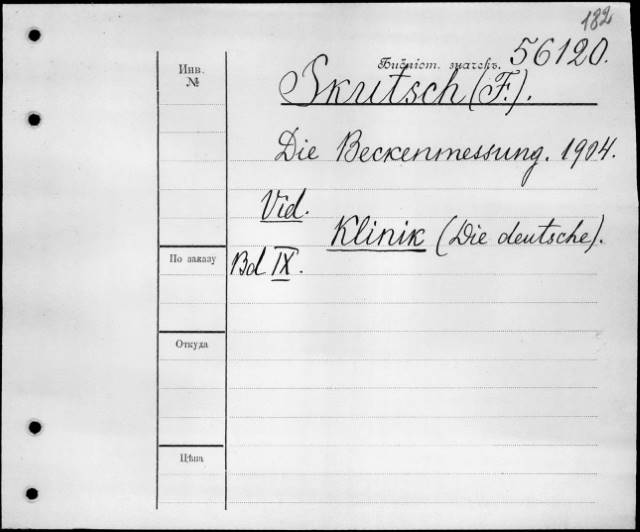 182
Инв.
№
Библіот. значекъ. 56120.
Skutsch (F.).
Die Beckenmessung. 1904.
Vid.
Klinik (Die deutsche).
По заказу
Bd IX.
Откуда
Цѣна